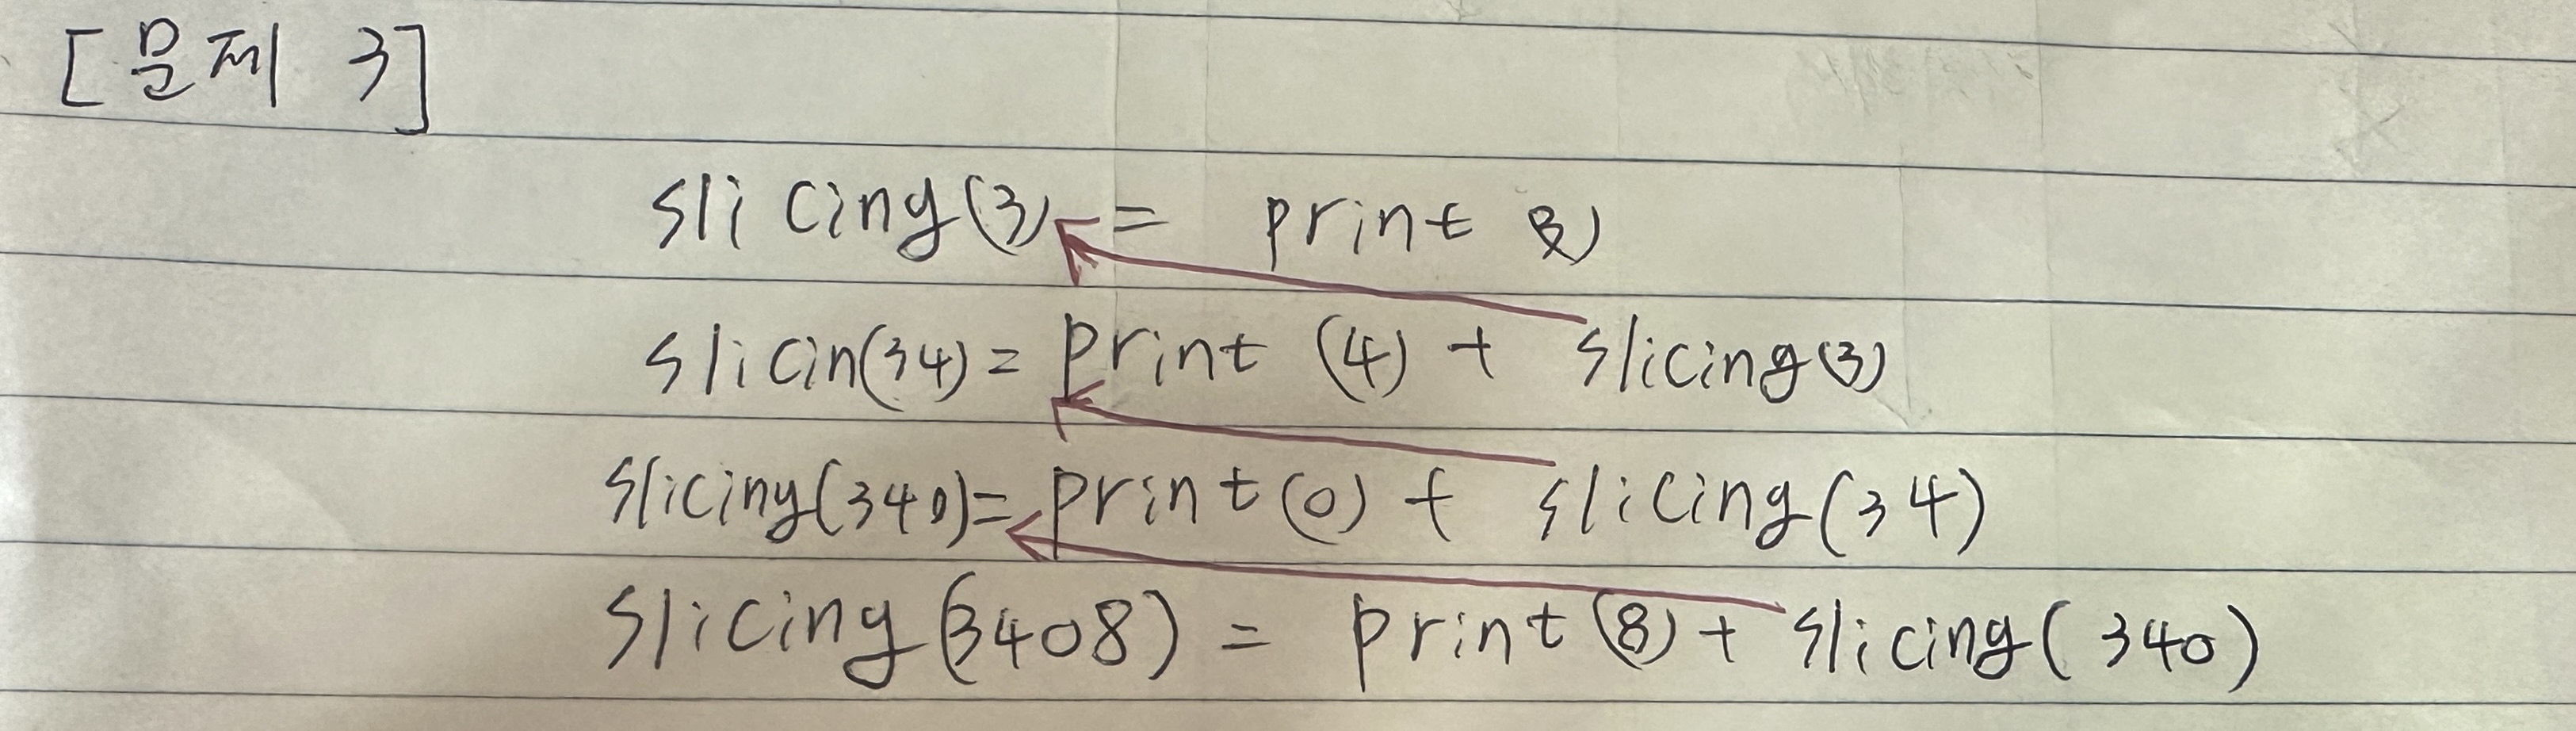 [문제 3]
slicing(3) = print 3)
slicin(34) = print (4) + slicing(3)
slicing(340) = print (0) + slicing(34)
slicing(3408) = print (8) + slicing( 340)